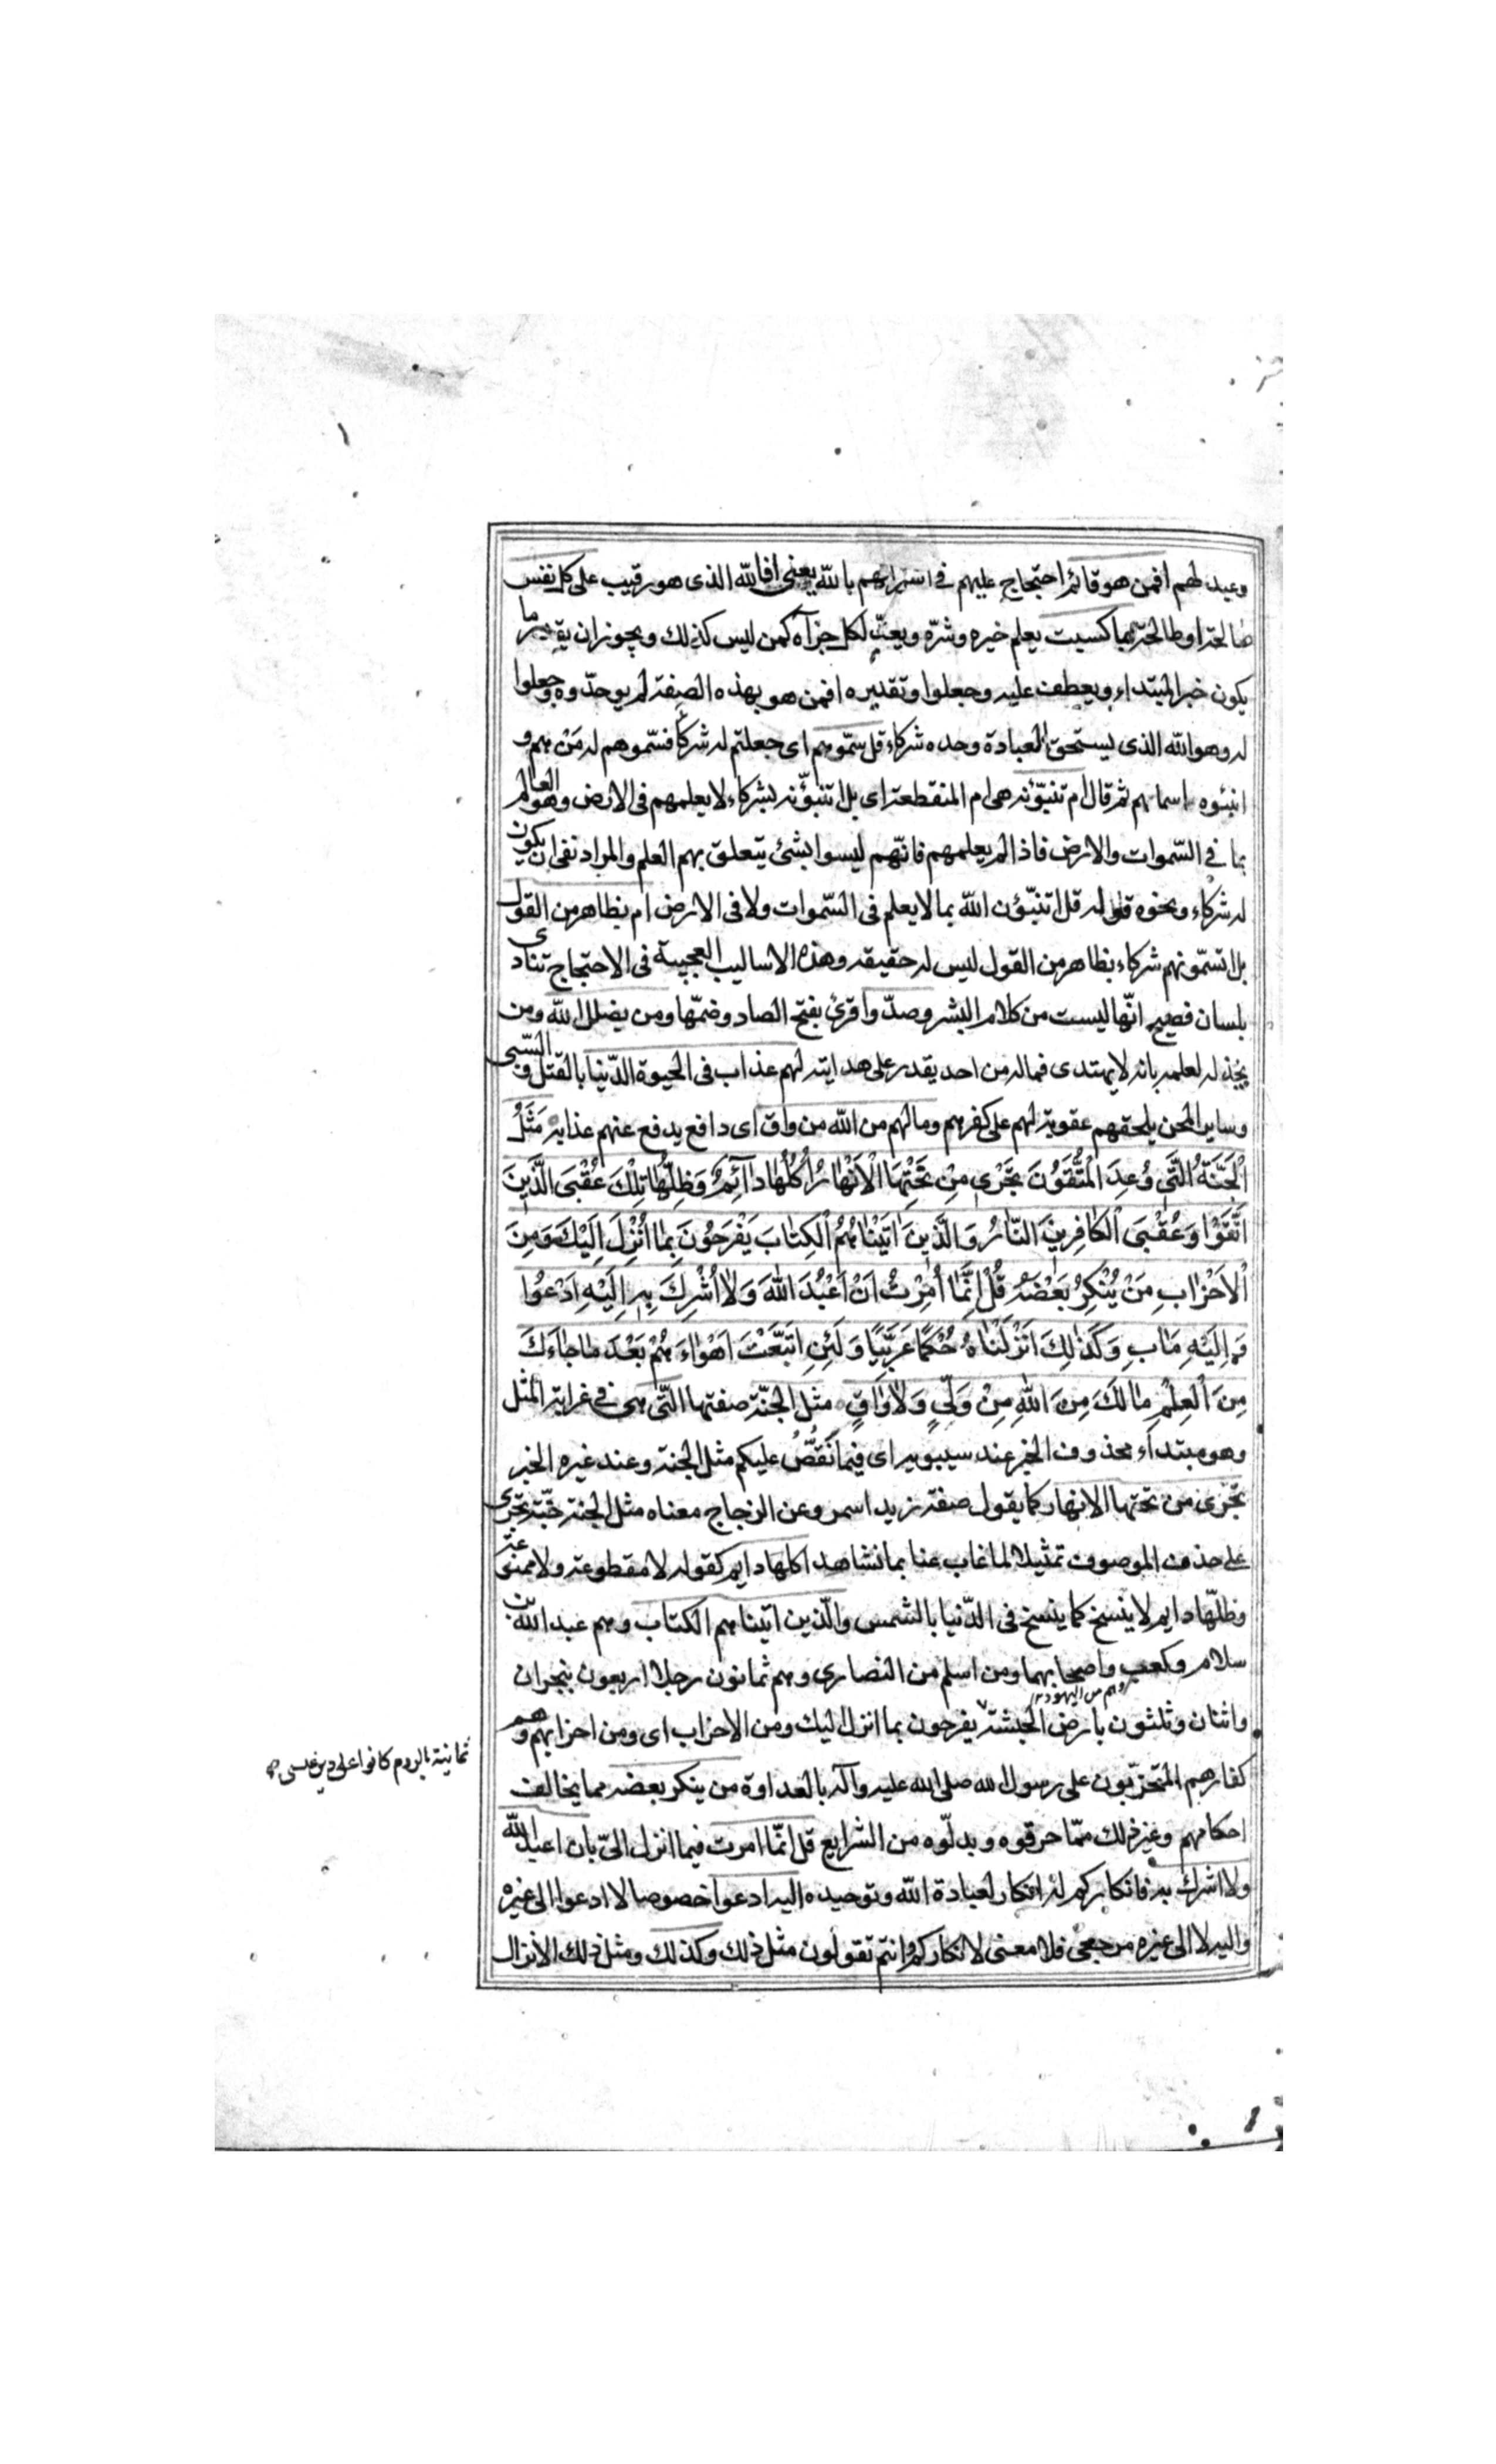 وعيد لهم افمن هو قائم احتجاج عليهم في اشراكهم بالله يعني افالله الذى هو رقيب على كل نفس
صالحة او طالحة بما كسبت يعلم خيره وشرّه ويعدّ لكل جزآه كمن ليس كذلك ويجوز ان يقدر ما
يكون خبرا لمبتداء ويعطف عليه وجعلوا وتقديره افمن هو بهذه الصفة لم يوحدّوه وجعلوا
له وهو الله الذى يستحق العبادة وحده شركاء قل سمّوهم اى جعلتم له شركاء فسمّوهم له مَنْ هم و
انبئوه باسمائهم ثم قال ام تنبّؤنه هى ام المنقطعة اى بل اتنبؤّنه بشركاء لا يعلمهم فى الارض وهو العالم
بما في السّموات والارض فاذا لم يعلمهم فانّهم ليسوا بشئ يتعلق بهم العلم والمراد نفى ان يكون
له شركاء ونحوه قوله قل اتنبّؤن الله بما لا يعلم فى السّموات ولا فى الارض ام بظاهر من القول
بل اتسمّونهم شركاء بظاهر من القول ليس له حقيقه وهذه الاساليب العجيبة فى الاحتجاج تنادى
بلسان فصيح انّها ليست من كلام البشر وصدّوا قرئ بفتح الصاد وضمّها ومن يضلل الله ومن
يخذله لعلمه بانه لا يهتدى فماله من احد يقدر على هدايته لهم عذاب فى الحيوة الدّنيا بالقتل والسّبى
وساير المحن يلحقهم عقوبة لهم على كفرهم ومالهم من الله من واق اى دافع يدفع عنهم عذابه مَثَلُ
اَلْجَنَّةِ الَّتى وُعِدَ الْمُتَّقُونَ تَجْرى مِنْ تَحْتِهَا الْاَنْهارُ اُكُلُها دآئِمٌ وَظِلُّها تِلْكَ عُقْبَى الَّذينَ
اتَّقَوْا وَعُقْبَى الْكافِرينَ النّارُ وَالَّذينَ اتَيْناهُمُ الْكِتابَ يَفْرَحُونَ بِما اُنْزِلَ اِلَيْكَ وَمِنَ
الْاَحْزابِ مَنْ يُنْكِرُ بَعْضَهُ قُلْ اِنَّما اُمِرْتُ اَنْ اَعْبُدَ اللهَ وَلا اُشْرِكَ بِهِ اِلَيْهِ اَدْعُوا
وَاِلَيْهِ مَابِ وَكَذلِكَ اَنْزَلْناهُ حُكْمًا عَرَبِيًّا وَلَئِنِ اتَّبَعْتَ اَهْواءَهُمْ بَعْدَ ما جاءَكَ
مِنَ الْعِلْمِ مالَكَ مِنَ اللهِ مِنْ وَلِىٍّ وَلا واقٍ مثل الجنّة صفتها الّتى هى في غرابة المثل
وهو مبتداء محذوف الخبر عند سيبويه اى فيما نَقُصُّ عليكم مثل الجنة وعند غيره الخبر
تجرى من تحتها الانهار كما يقول صفة زيد اسمر وعن الزجاج معناه مثل الجنة جنّة تجرى
على حذف الموصوف تمثيلا لما غاب عنا بما نشاهد اكلها دايم كقوله لا مقطوعة ولا ممنوعة
وظلّها دايم لا ينسخ كما ينسخ فى الدّنيا بالشمس والّذين اتيناهم الكتاب وهم عبد الله بن
سلام وكعب واصحابهما ومن اسلم من النصارى وهم ثمانون رجلا اربعون بنجران
واثنان وثلثون بارض الحبشة يفرحون بما انزل اليك ومن الاحزاب اى ومن احزابهم وهم
ثمانية بالروم كانوا على دين عيسى
كفارهم المتحزّبون على رسول الله صلى الله عليه وآله بالعداوة من ينكر بعضه مما يخالف
احكامهم وغير ذلك ممّا حرفوه وبدلّوه من الشرايع قل انّما امرت فيما انزل الىّ بان اعبد الله
ولا اشرك به فانكاركم له انكار لعبادة الله وتوحيده اليه ادعوا خصوصا لا ادعوا الى غيره
واليه لا الى غيره مرجعى فلا معنى لانكاركم وانتم تقولون مثل ذلك وكذلك ومثل ذلك الانزال